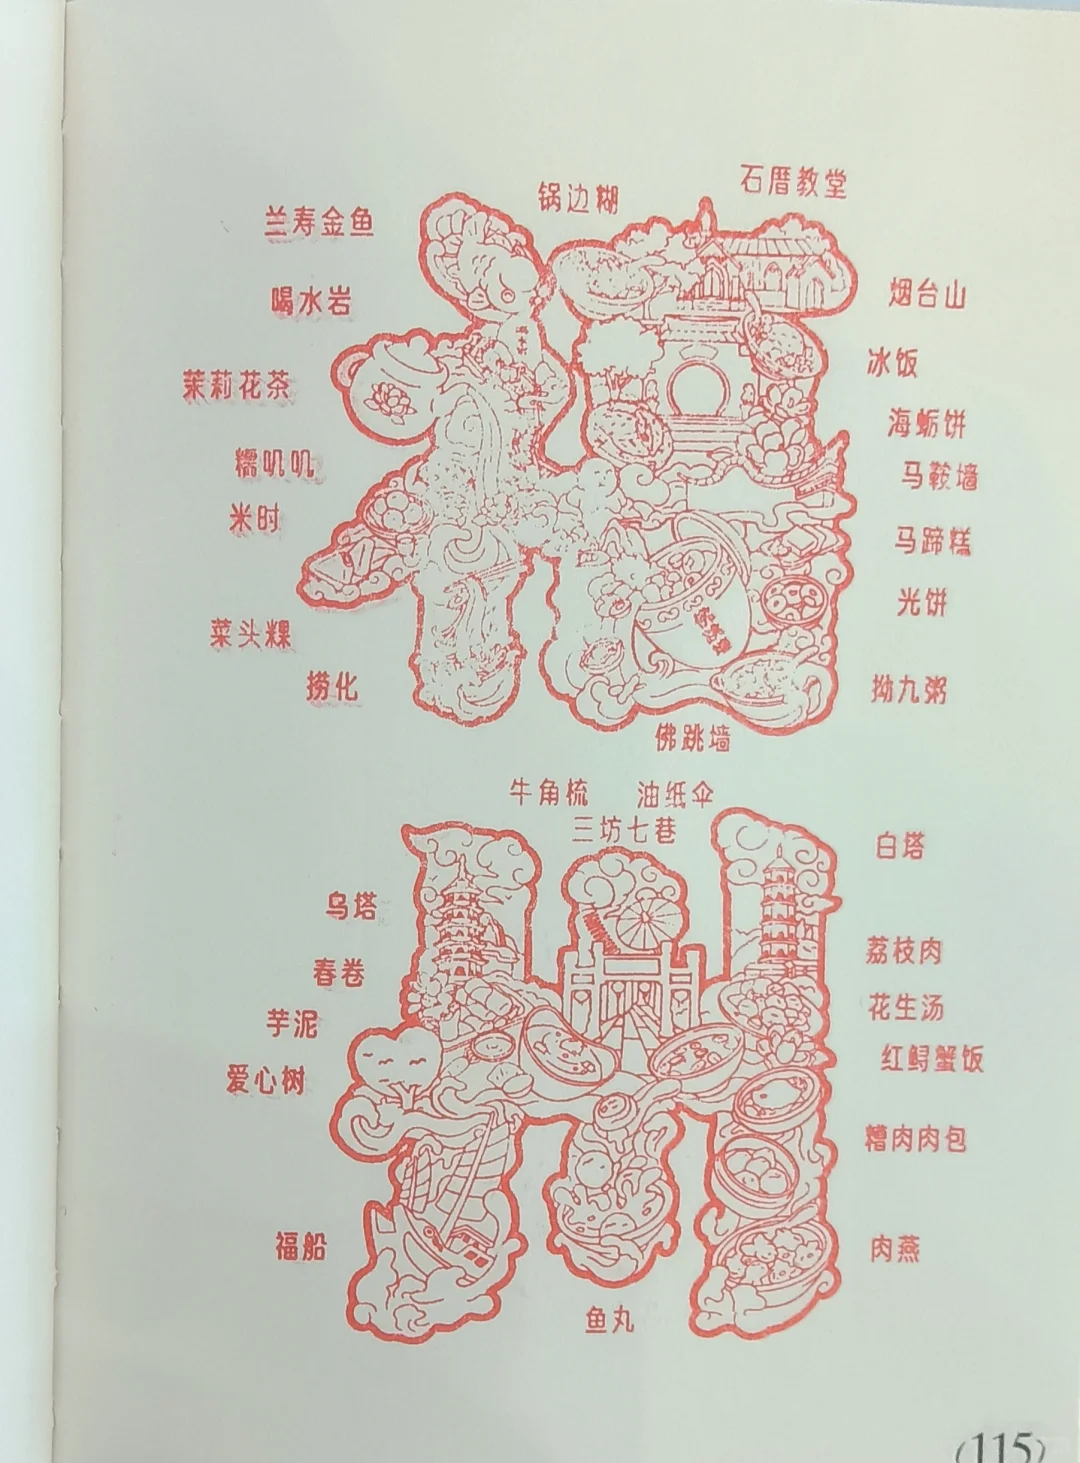 石厝教堂
锅边糊
兰寿金鱼
烟台山
喝水岩
冰饭
茉莉花茶
海蛎饼
糯叽叽
马鞍墙
米时
马蹄糕
光饼
菜头粿
捞化
拗九粥
佛跳墙
牛角梳 油纸伞
三坊七巷
白塔
乌塔
荔枝肉
春卷
花生汤
芋泥
红鲟蟹饭
爱心树
糟肉肉包
福船
肉燕
鱼丸
(115)